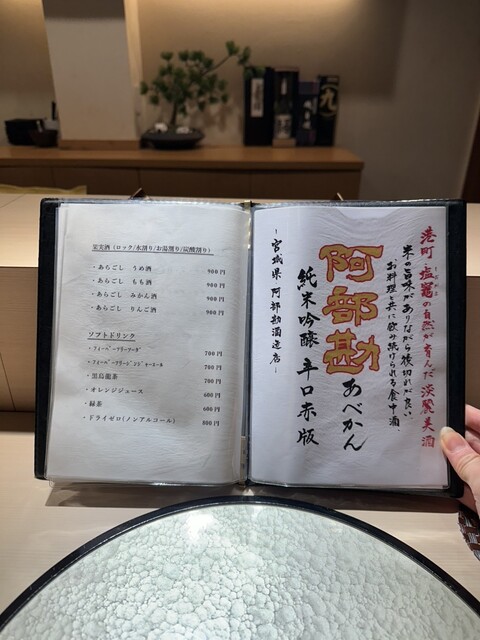 果実酒（ロック/水割り/お湯割り/炭酸割り）
・あらごし　うめ酒　900円
・あらごし　もも酒　900円
・あらごし　みかん酒　900円
・あらごし　りんご酒　900円
ソフトドリンク
・フィーバーツリーソーダ　700円
・フィーバーツリージンジャーエール　700円
・黒烏龍茶　700円
・オレンジジュース　600円
・緑茶　600円
・ドライゼロ(ノンアルコール)　800円
港町 塩竈の自然が育んだ淡麗美酒
米の旨味がありながら後切れが良い、
お料理と共に飲み続けられる食中酒、
阿部勘 あべかん
純米吟醸 辛口赤版
－宮城県 阿部勘酒造店－